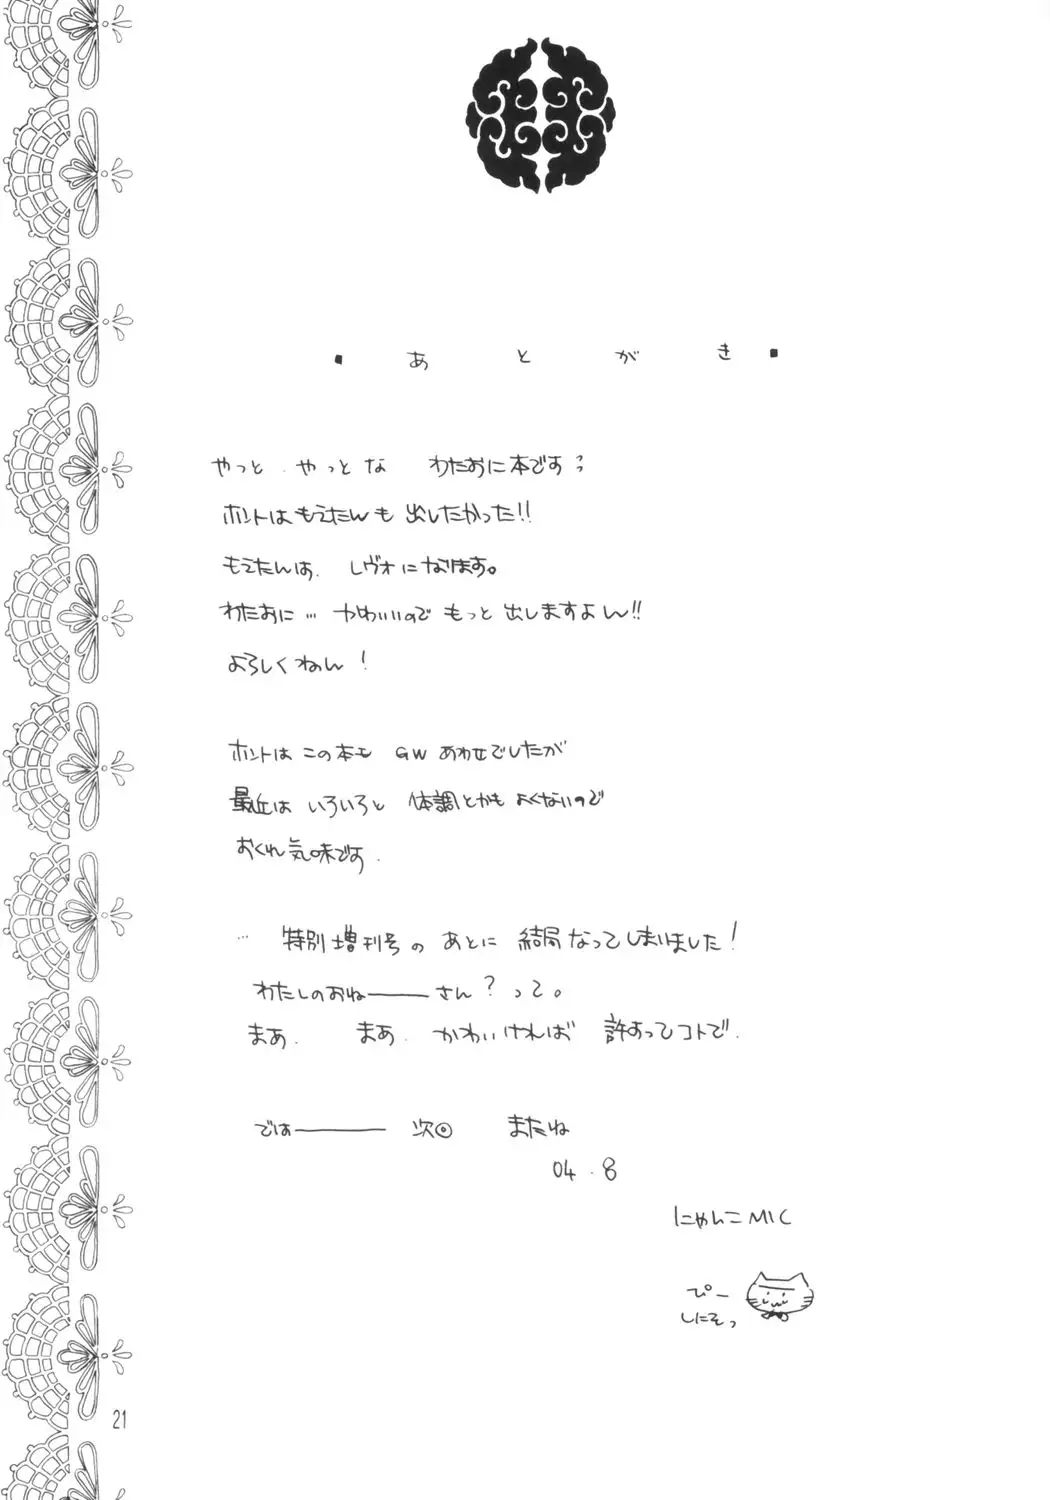 ■ あとがき ■
やっと やっとな わたおに本です
ホントはもえたんも 出したかった!!
もえたんは、レヴォになります。
わたおに… かわいいので もっと出しますよん!!
よろしくねん!
ホントは この本も GWあわせでしたが
最近は いろいろと 体調とかも よくないので
おくれ気味です.
… 特別増刊号の あとに 結局なってしまいました!
わたしのおねーーさん?って。
まあ. まあ. かわいければ 許すってコトで.
ではーー 次回 またね
04.8
にゃんこMIC
ぴー
しにそっ
21